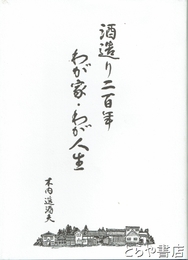 酒造り二百年
わが家・わが人生
木内造酒夫
とらや書店